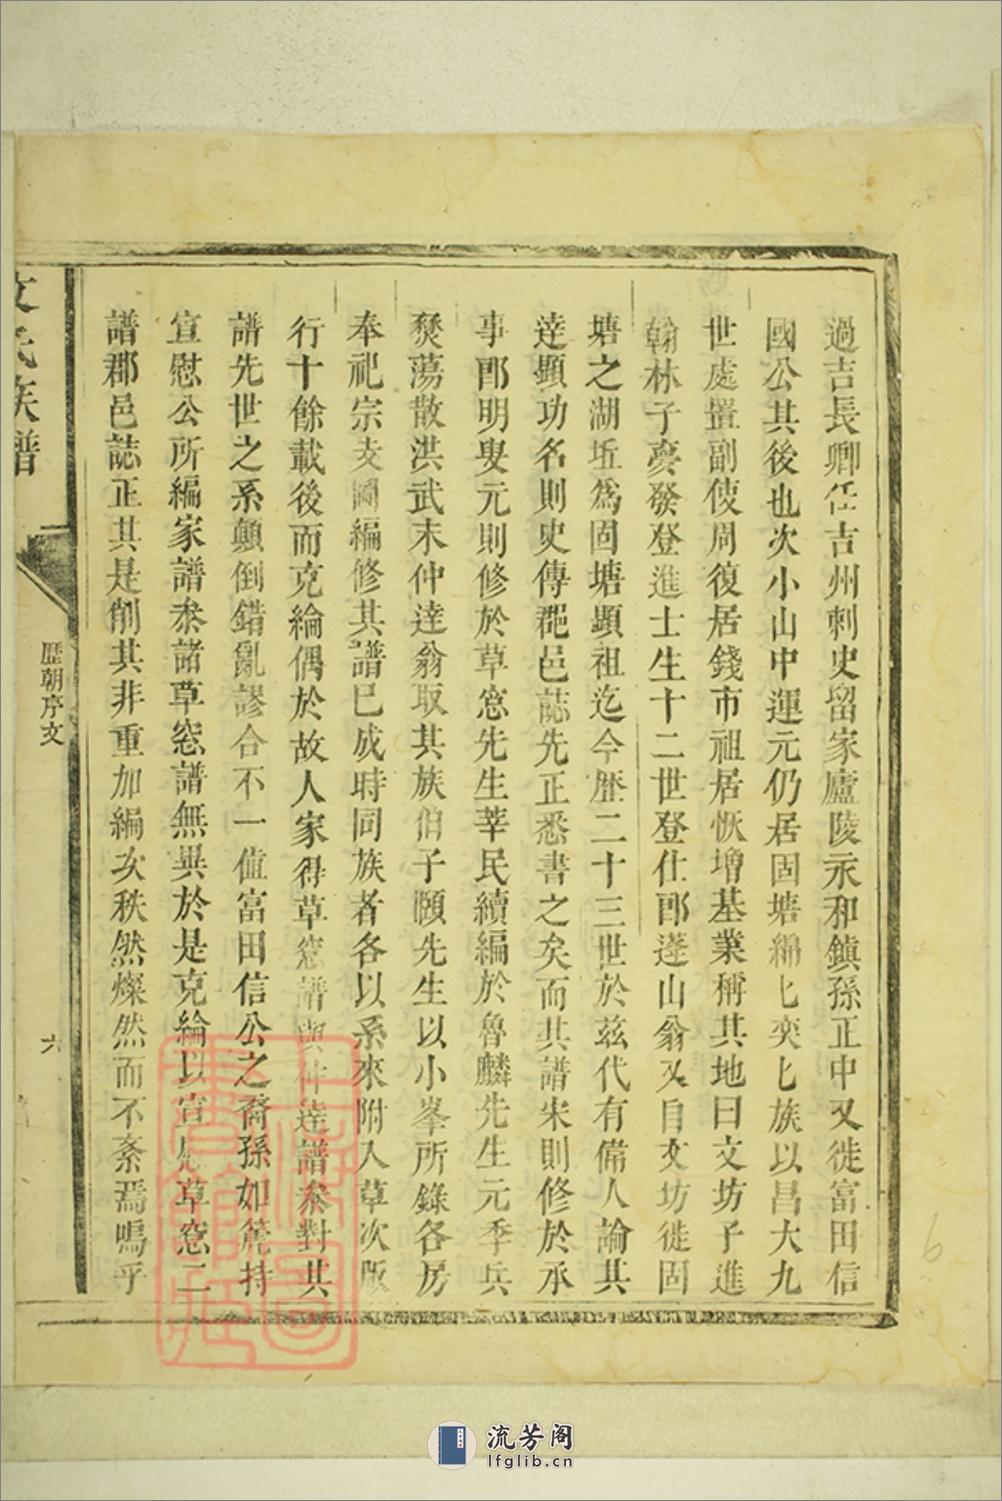 過吉長卿任吉州刺史留家廬陵永和鎮孫正中又徙富田信
國公其後也次小山中運元仍居固塘綿匕奕匕族以昌大九
世處置副使周復居錢市祖居恢增基業稱其地曰文坊子進
翰林子夢發登進士生十二世登仕郎蓬山翁又自文坊徙固
塘之湖坵為固塘顯祖迄今歷二十三世於茲代有偉人論其
達顯功名則史傳郡邑誌先正悉書之矣而其譜宋則修於承
事郎明叟元則修於草窓先生莘民續編於魯麟先生元季兵
燹蕩散洪武末仲達翁取其族伯子頤先生以小峯所錄各房
奉祀宗支圖編修其譜已成時同族者各以系來附入草次版
行十餘載後而克綸偶於故人家得草窓譜與仲達譜叅對其
譜先世之系顛倒錯亂謬合不一值富田信公之裔孫如箎持
宣慰公所編家譜叅諸草窓譜無異於是克綸以宣慰草窓二
譜郡邑誌正其是削其非重加編次秩然燦然而不紊焉嗚乎
文氏族譜
歷朝序文
六
6
流芳阁
lfglib.cn